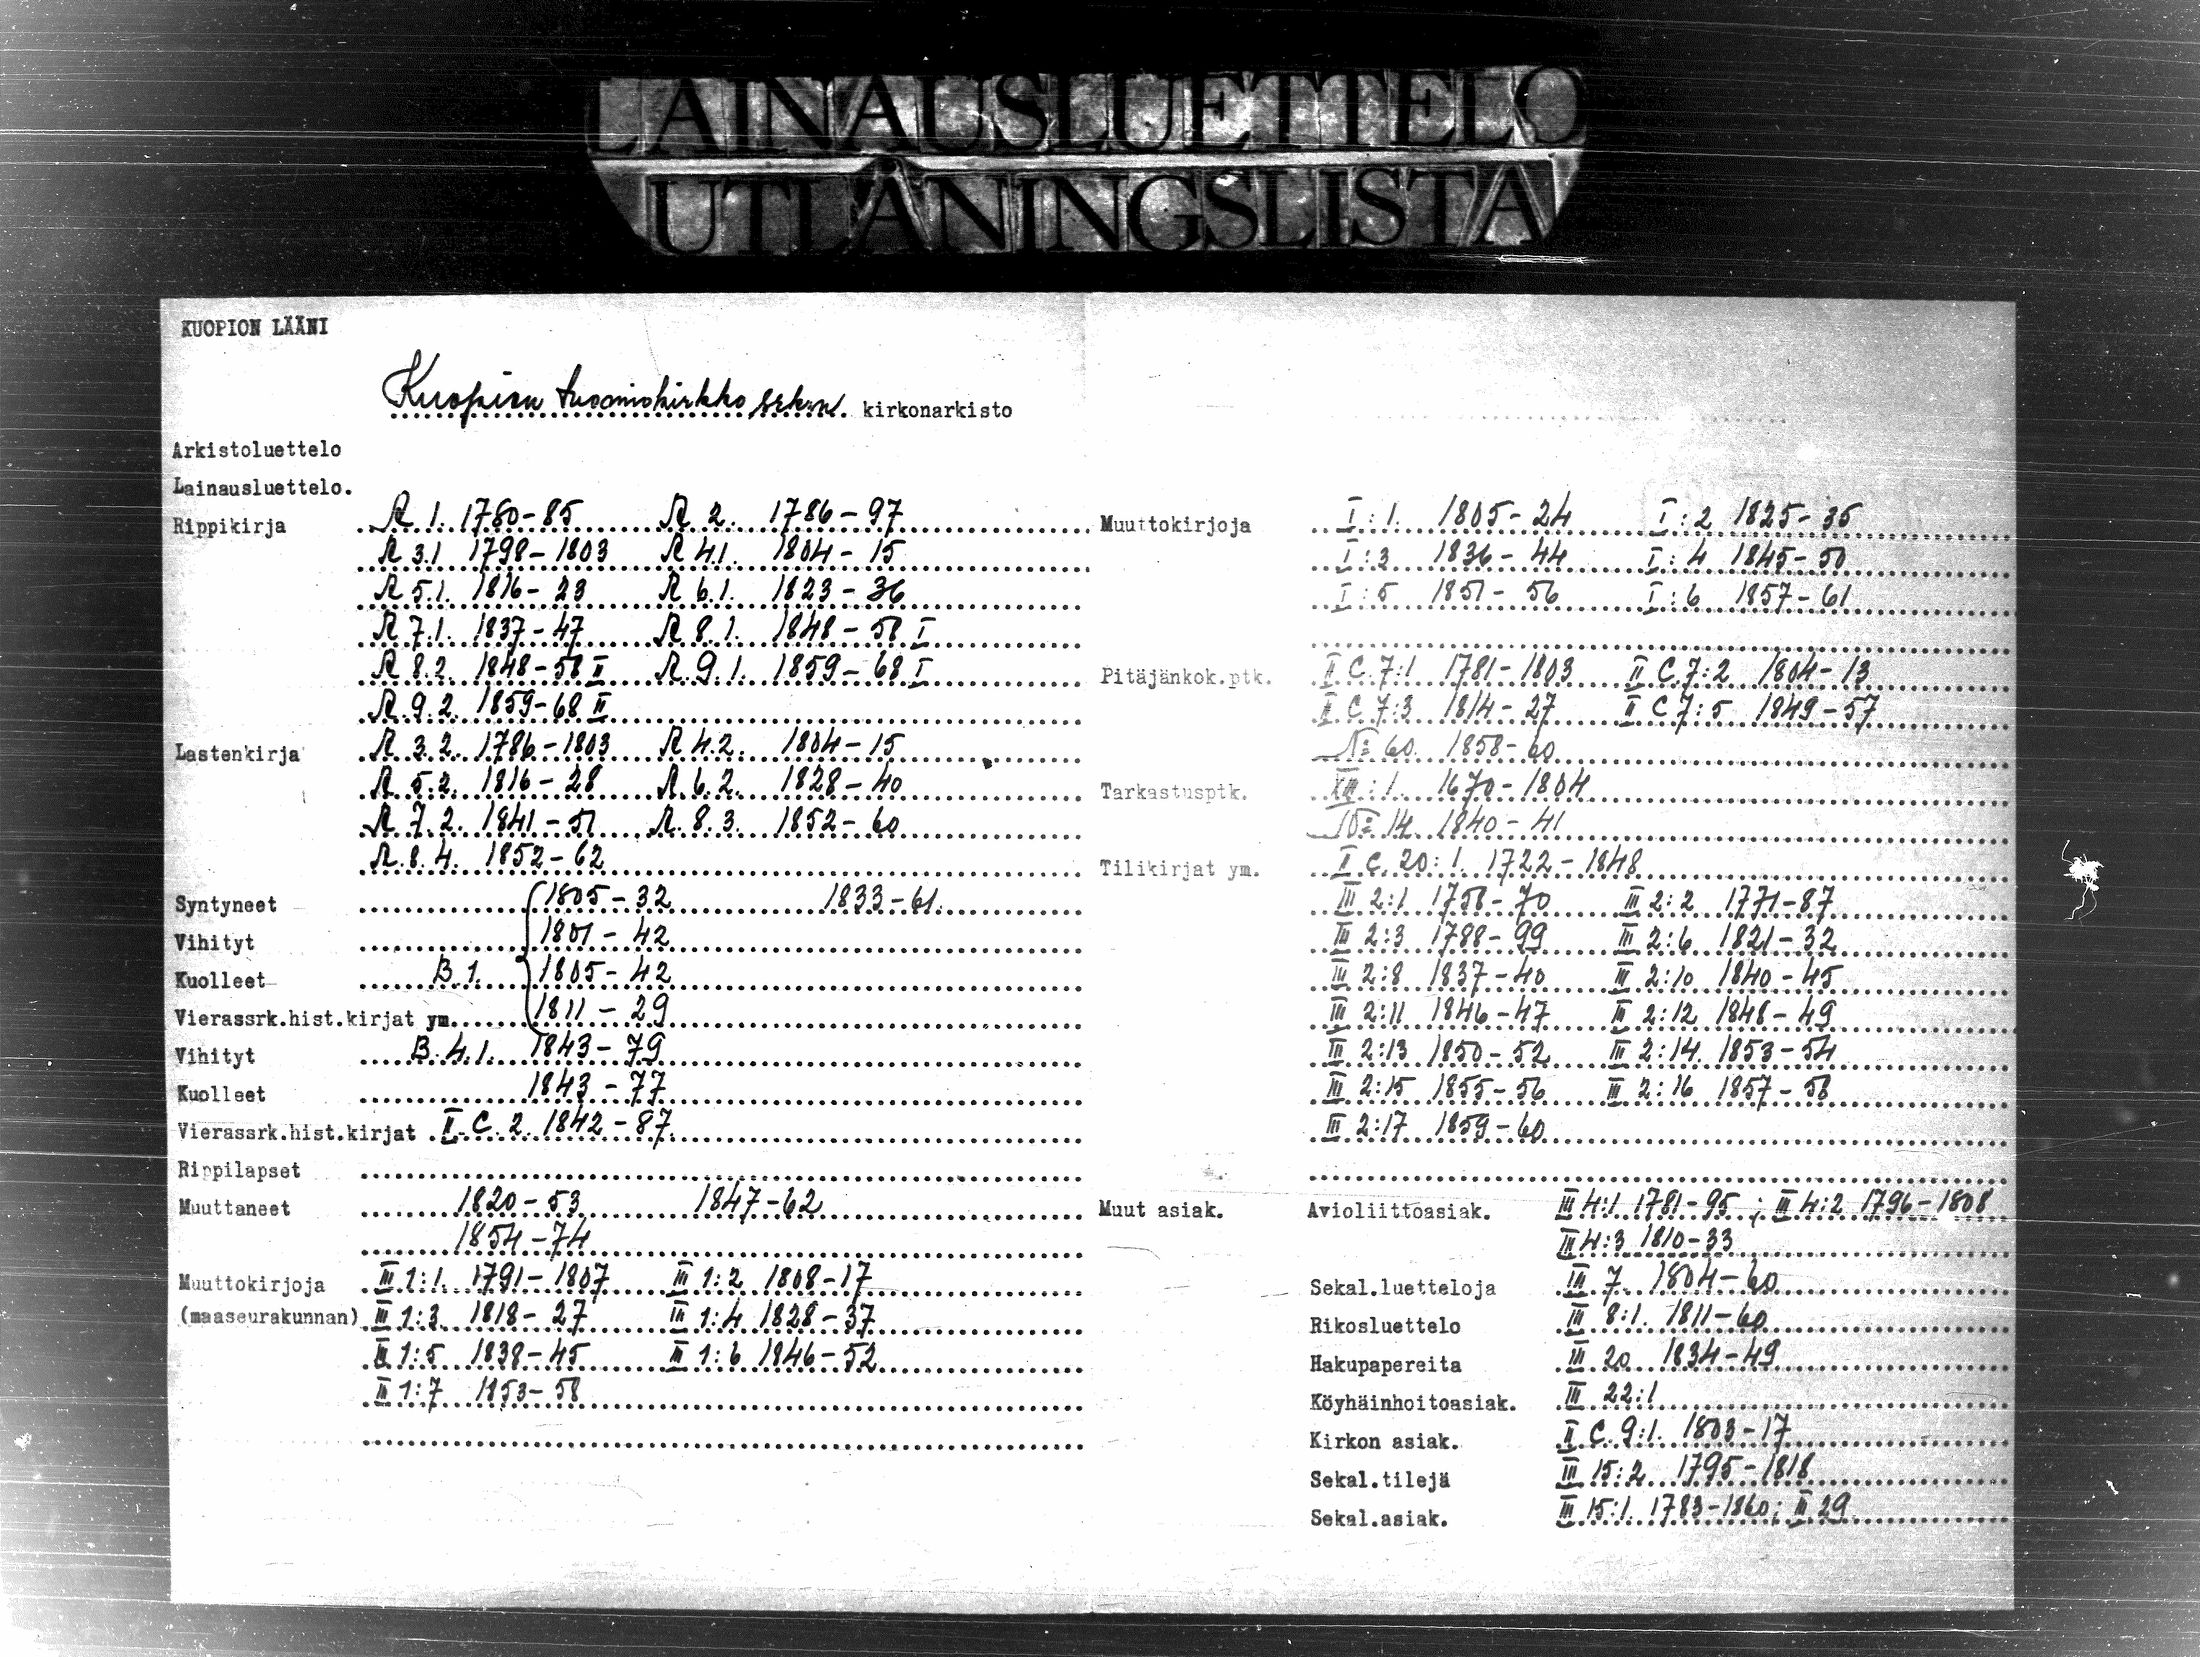 LAINAUSLUETTELO
UTLÅNINGSLISTA
KUOPION LÄÄNI
Kuopion tuomiokirkko srkn. kirkonarkisto
Arkistoluettelo
Lainausluettelo.
Rippikirja A. 1. 1780-85 A 2. 1786-97
A 3.1 1798-1803 A 4.1. 1804-15
A 5.1. 1816-23 A 6.1. 1823-36
A 7.1. 1837-47 A 8.1. 1848-58 I
A 8.2. 1848-58 II A. 9.1. 1859-68 I
A. 9.2. 1859-68 II
Lastenkirja A. 3.2. 1786-1803 A 4.2. 1804-15
A. 5.2. 1816-28 A. 6.2. 1828-40
A 7.2. 1841-51 A. 8.3. 1852-60
A. 8.4. 1852-62
Syntyneet 1805-32 1833-61.
Vihityt 1801-42
Kuolleet B.1. 1805-42
Vierassrk.hist.kirjat ym. 1811-29
Vihityt B.4.1. 1843-79
Kuolleet 1843-77
Vierassrk.hist.kirjat II. C. 2. 1842-87.
Rippilapset
Muuttaneet 1820-53 1847-62
1854-74
Muuttokirjoja III 1:1. 1791-1807 III 1:2 1808-17
(maaseurakunnan) III 1:3 1818-27 III 1:4 1828-37
III 1:5 1838-45 III 1:6 1846-52
III 1:7 1853-58
Muuttokirjoja I:1. 1805-24 I:2 1825-35
I:3 1836-44 I:4 1845-50
I:5 1851-56 I:6 1857-61
Pitäjänkok.ptk. II C.7:1 1781-1803 II C.7:2 1804-13
II C 7:3 1814-27 II C 7:5 1849-57
No 60. 1858-60
Tarkastusptk. XIII:1. 1670-1804
No 14. 1840-41
Tilikirjat ym. II C. 20:1. 1722-1848
III 2:1 1758-70 III 2:2 1771-87
III 2:3 1788-99 III 2:6 1821-32
III 2:8 1837-40 III 2:10 1840-45
III 2:11 1846-47 III 2:12 1848-49
III 2:13 1850-52 III 2:14. 1853-54
III 2:15 1855-56 III 2:16 1857-58
III 2:17 1859-60
Muut asiak. Avioliittoasiak. III 4:1 1781-95; III 4:2 1796-1808
III 4:3 1810-33
Sekal.luetteloja III 7. 1804-60
Rikosluettelo III 8:1. 1811-60
Hakupapereita III 20 1834-49
Köyhäinhoitoasiak. III 22:1
Kirkon asiak. II C. 9:1. 1803-17
Sekal.tilejä III 15:2 1795-1818
Sekal.asiak. III 15:1. 1783-1860; II 29